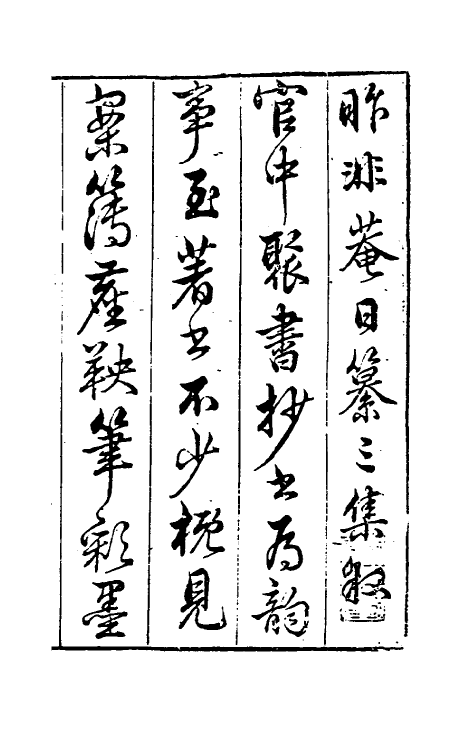 昨非菴日纂三集叙
官中聚書抄書為韵
事至著書不少概見
案簿塵鞅筆彩墨